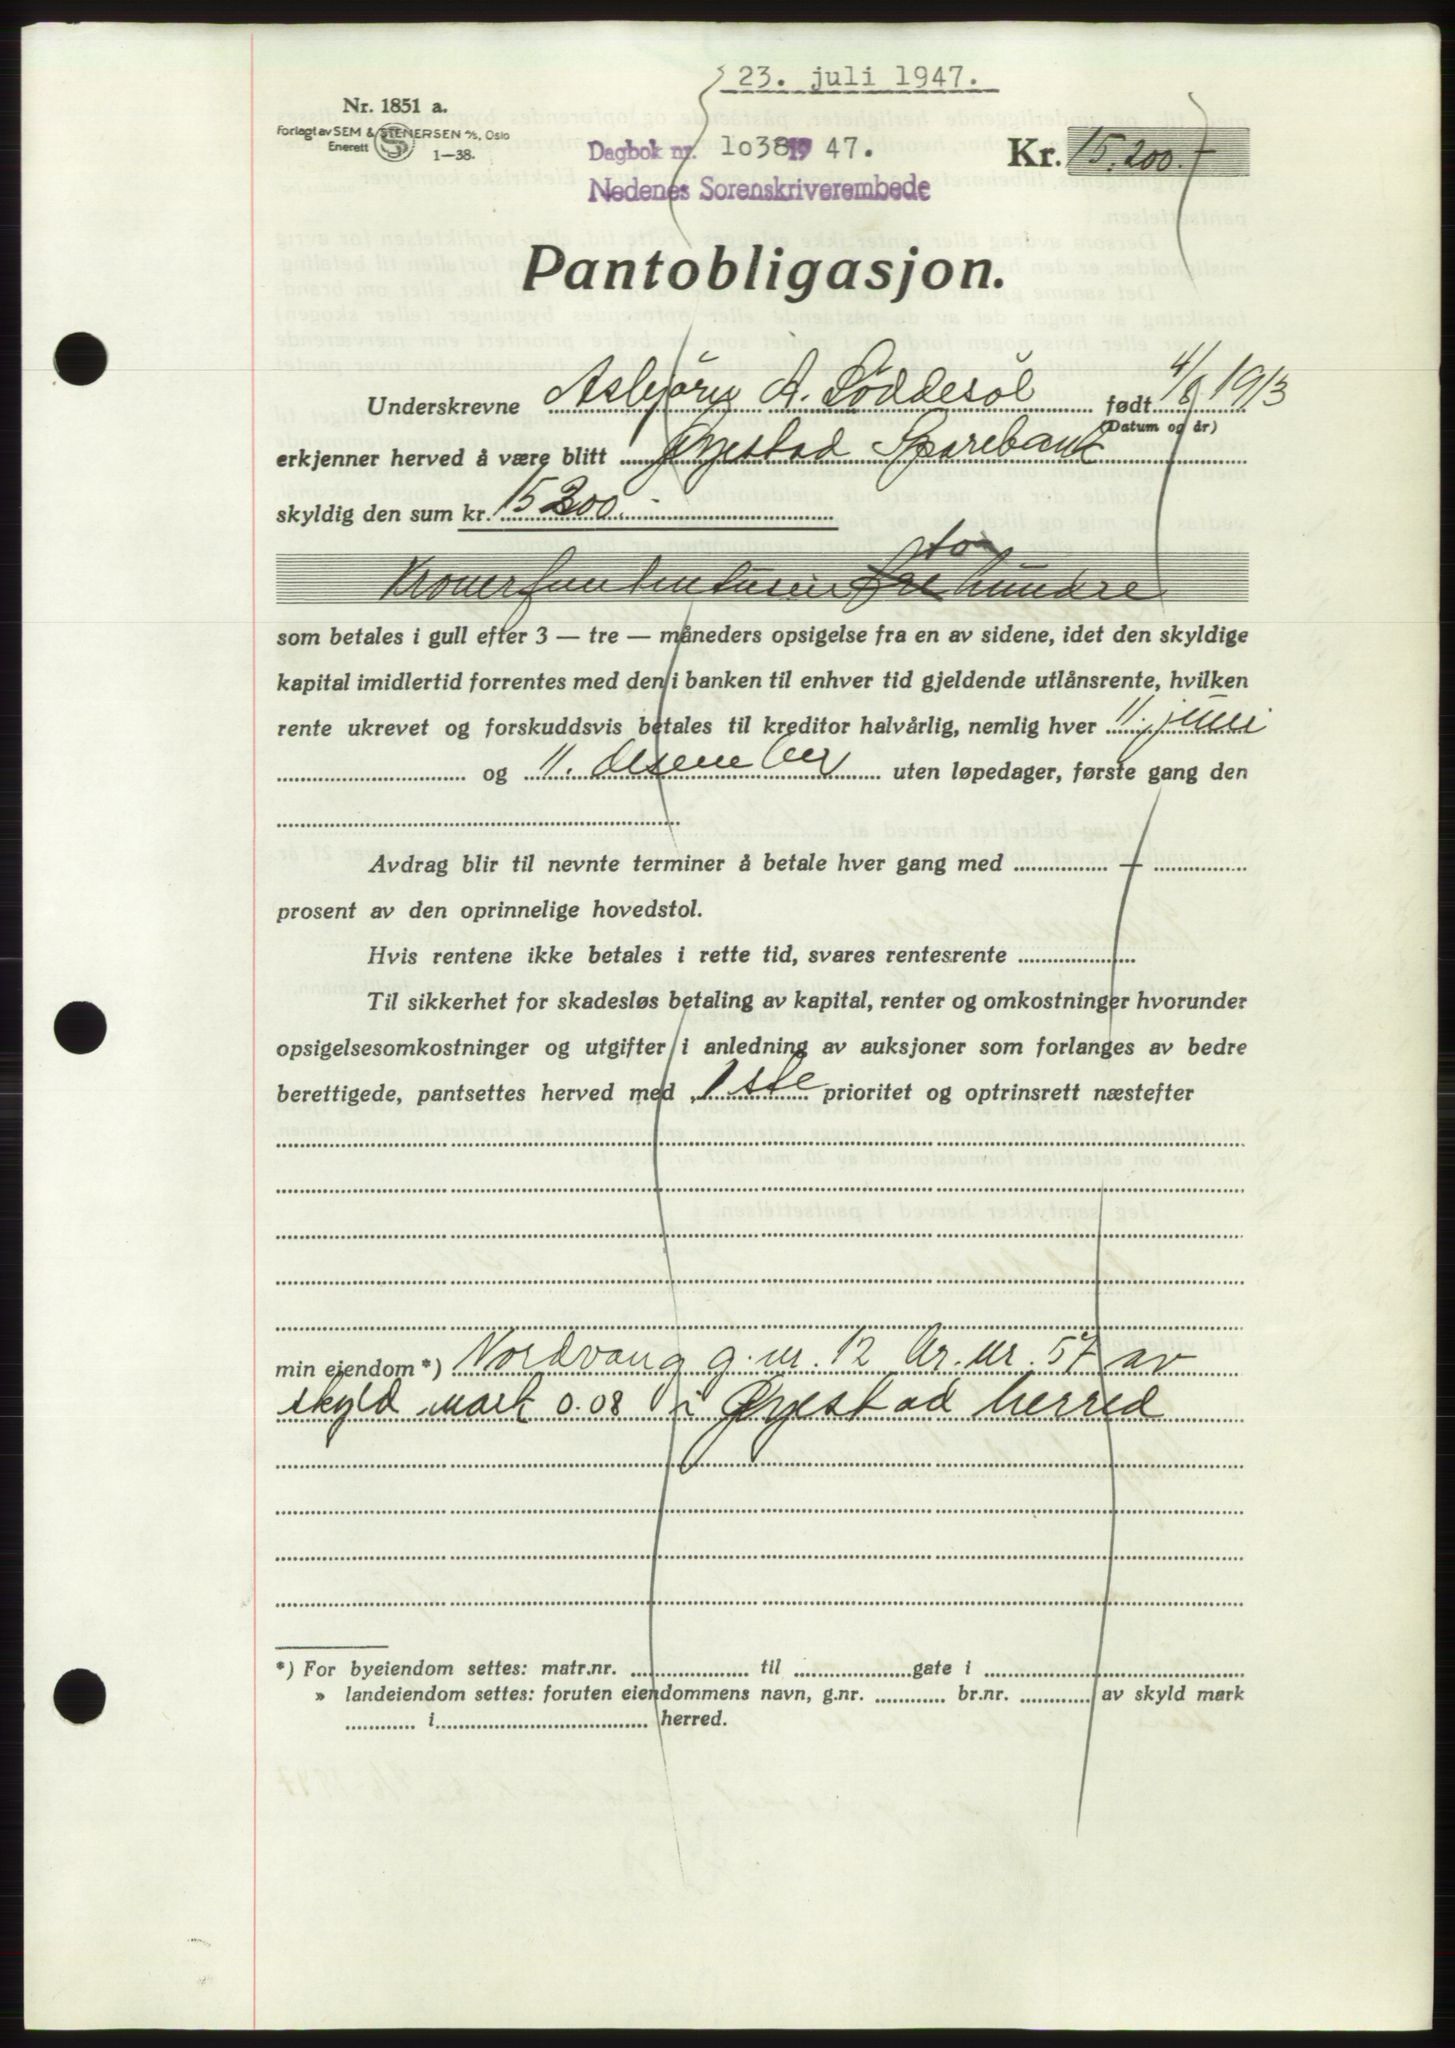 23. juli 1947.
Nr. 1851 a.
Forlagt av SEM & STENERSEN A/S, Oslo
Enerett 1—38.
Dagbok nr. 1038 1947.
Kr. 15.200.-
Nedenes Sorenskriverembede
Pantobligasjon.
Underskrevne Asbjörn A. Löddesöl født 4/8 1913
(Datum og år)
erkjenner herved å være blitt Øyestad Sparebank
skyldig den sum kr. 15200.-
to
Kroner femtentusen hundre
som betales i gull efter 3 — tre — måneders opsigelse fra en av sidene, idet den skyldige
kapital imidlertid forrentes med den i banken til enhver tid gjeldende utlånsrente, hvilken
rente ukrevet og forskuddsvis betales til kreditor halvårlig, nemlig hver 11. juni
og 11. desember uten løpedager, første gang den
Avdrag blir til nevnte terminer å betale hver gang med —
prosent av den oprinnelige hovedstol.
Hvis rentene ikke betales i rette tid, svares rentesrente
Til sikkerhet for skadesløs betaling av kapital, renter og omkostninger hvorunder
opsigelsesomkostninger og utgifter i anledning av auksjoner som forlanges av bedre
berettigede, pantsettes herved med 1ste prioritet og optrinsrett næstefter
min eiendom *) Nordvang g.nr. 12 br.nr. 57 av
skyld mark 0.08 i Øyestad herred
*) For byeiendom settes: matr.nr. til gate i
» landeiendom settes: foruten eiendommens navn, g.nr. br.nr. av skyld mark
i herred.